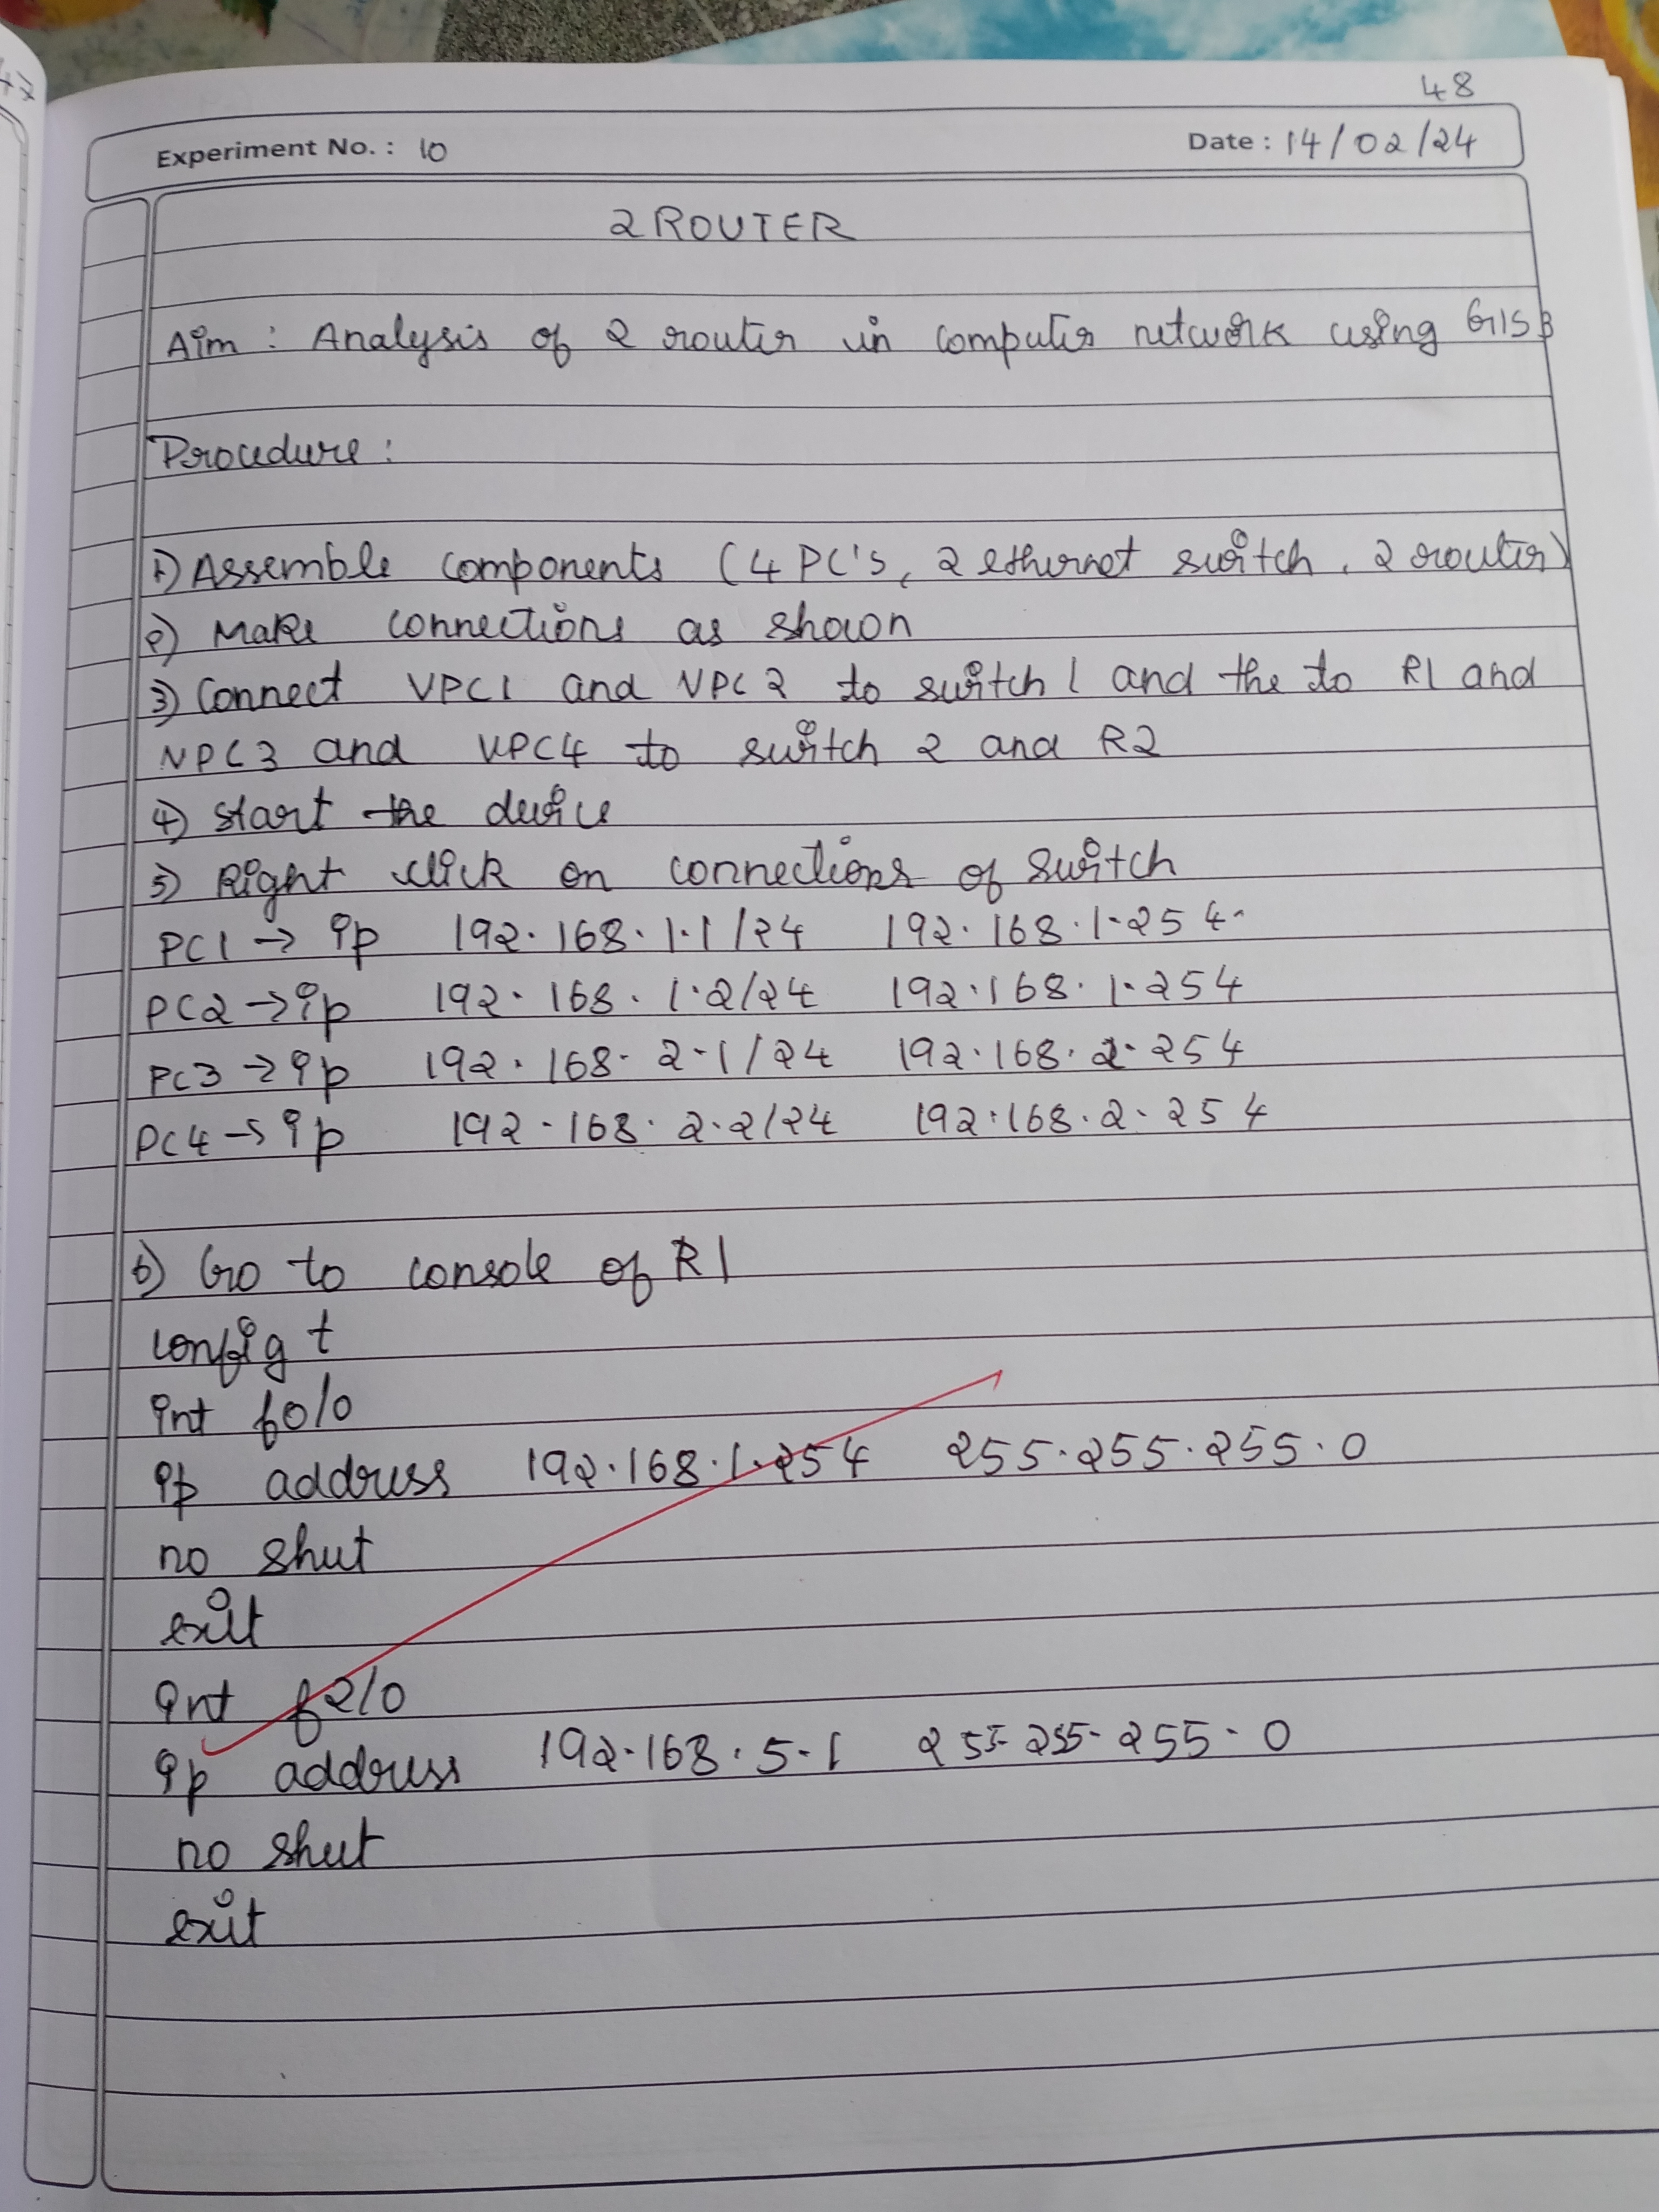 47
48
Experiment No. : 10
Date : 14/02/24
2 ROUTER
Aim : Analysis of 2 router in computer network using GNS3
Procedure :
1) Assemble components (4 PC's, 2 ethernet switch, 2 router)
2) Make connections as shown
3) Connect VPC1 and VPC2 to switch 1 and the to R1 and
VPC3 and VPC4 to switch 2 and R2
4) Start the device
5) Right click on connections of switch
PC1 → ip 192.168.1.1/24 192.168.1.254
PC2 → ip 192.168.1.2/24 192.168.1.254
PC3 → ip 192.168.2.1/24 192.168.2.254
PC4 → ip 192.168.2.2/24 192.168.2.254
6) Go to console of R1
config t
int f0/0
ip address 192.168.1.254 255.255.255.0
no shut
exit
int f2/0
ip address 192.168.5.1 255.255.255.0
no shut
exit